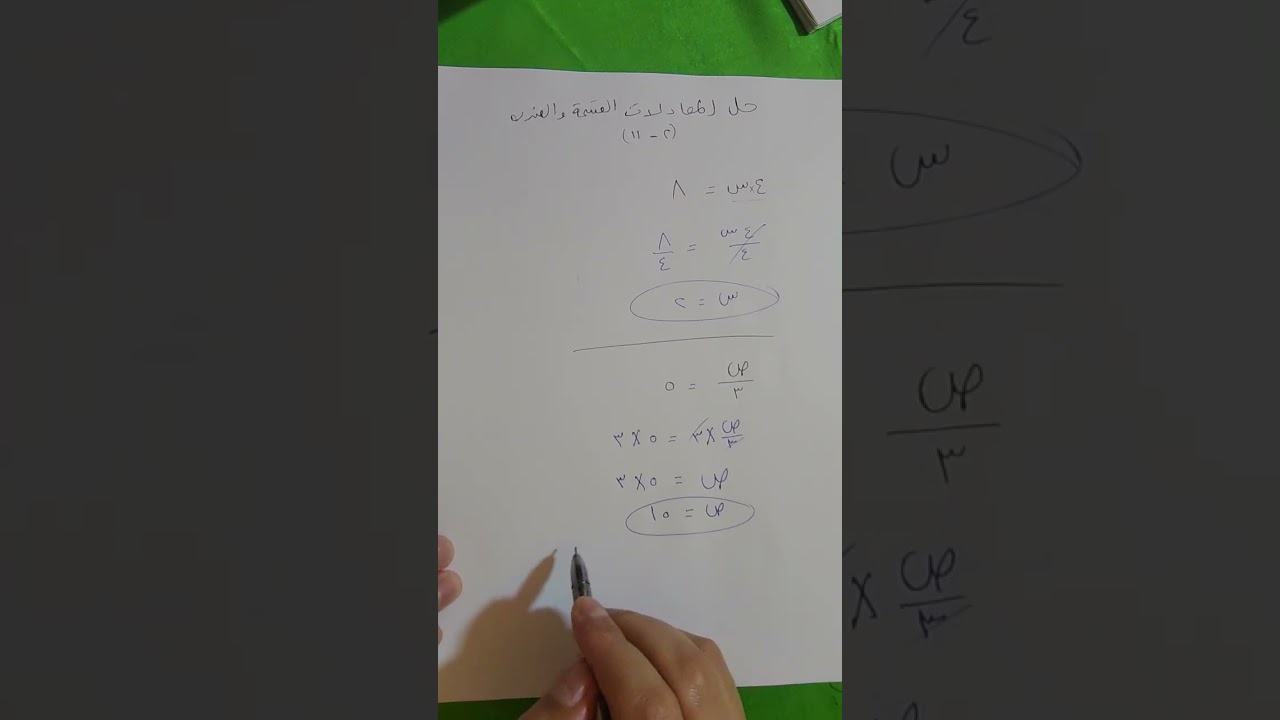 حل المعادلات القسمة والضرب
(٢ - ١١)
٤×س = ٨
٤س/٤ = ٨/٤
س = ٢
ص/٣ = ٥
ص/٣ × ٣ = ٥ × ٣
ص = ٥ × ٣
ص = ١٥